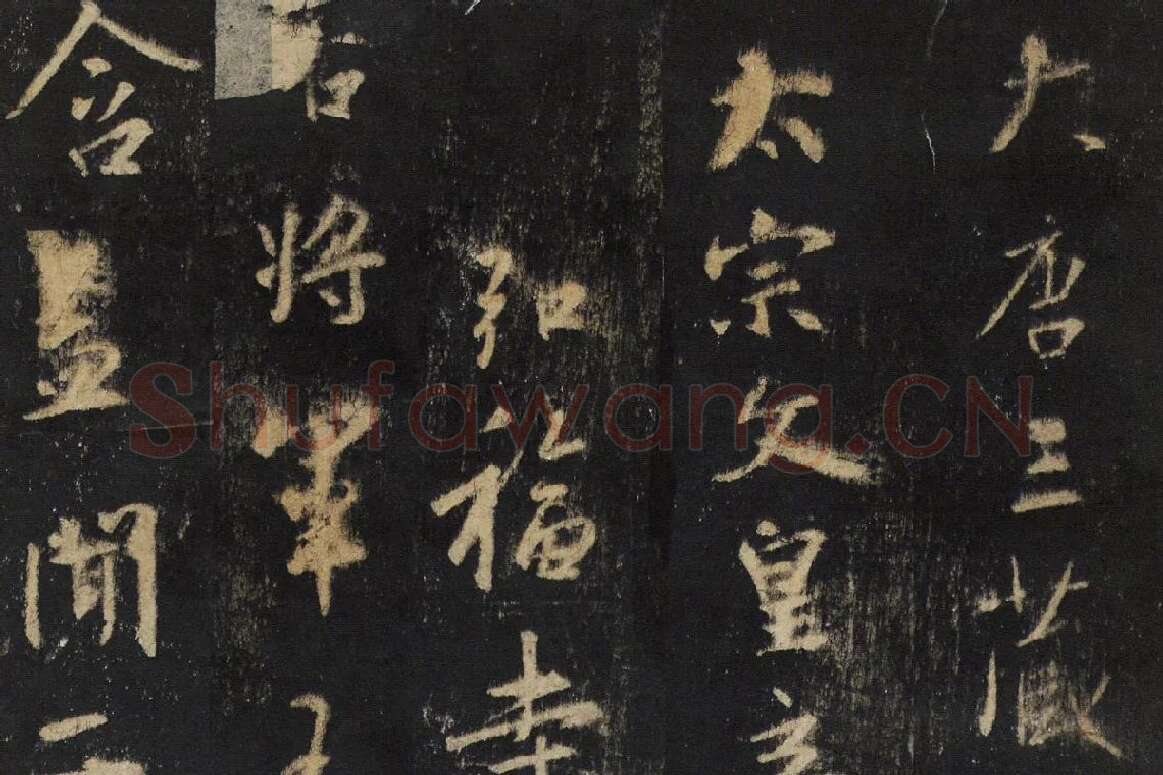 大唐三藏
太宗文皇
弘福寺
右將軍
含蓋聞二
Shufawang.CN